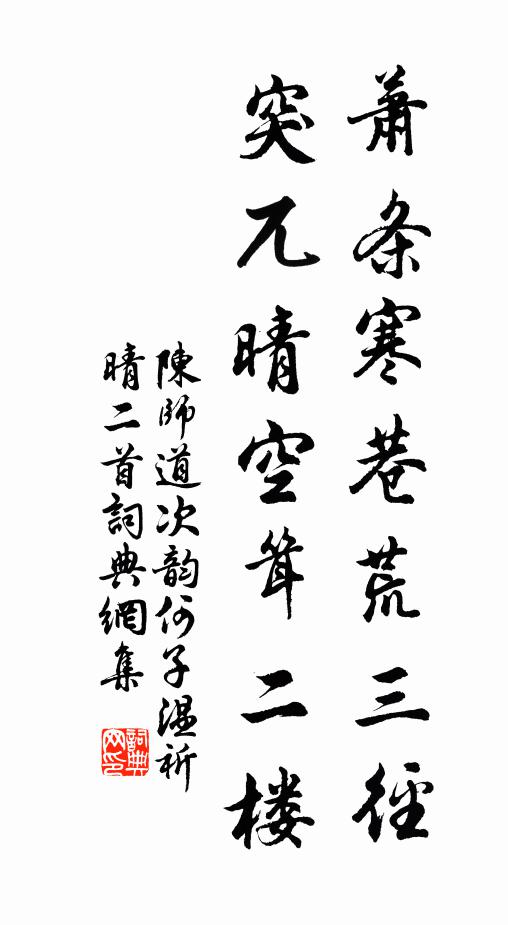 蕭条寒巷荒三径
突兀晴空耸二楼
陳師道次韵何子温祈
晴二首詞典網集
詞典网印